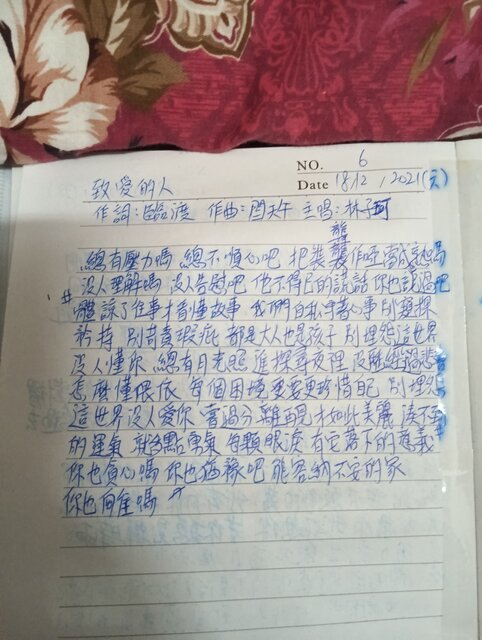 NO. 6
Date 18/12, 2021(六)
致愛的人
作詞:臨渡 作曲:閆天午 主唱:林子珂
總有壓力嗎 總不慎心吧 把裝聾作啞當成熟嗎
沒人理解嗎 沒人告慰吧 他不得已的謊話 你也說過吧
體諒了往事才看懂故事 我們自私守著心事 別糾
矜持 別苛責瑕疵 都是大人也是孩子 別埋怨這世界
沒人懂你 總有月光照進探尋夜裡 沒經過悲
怎麼懂偎依 每個困境更要更珍惜自己 別埋怨
這世界沒人愛你 嘗過分離再見才如此美麗 湊不到
的運氣 就多點勇氣 每顆眼淚 有它落下的意義
你也貪心嗎 你也猶豫吧 能容納不安的家
你也向往嗎